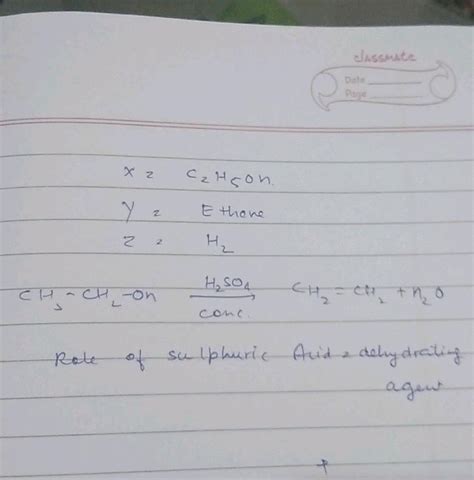 classmate
Date
Page
X = C₂H₅OH.
Y = Ethane
Z = H₂
CH₃-CH₂-OH H₂SO₄ conc. → CH₂=CH₂ + H₂O
Role of sulphuric Acid = dehydrating
agent